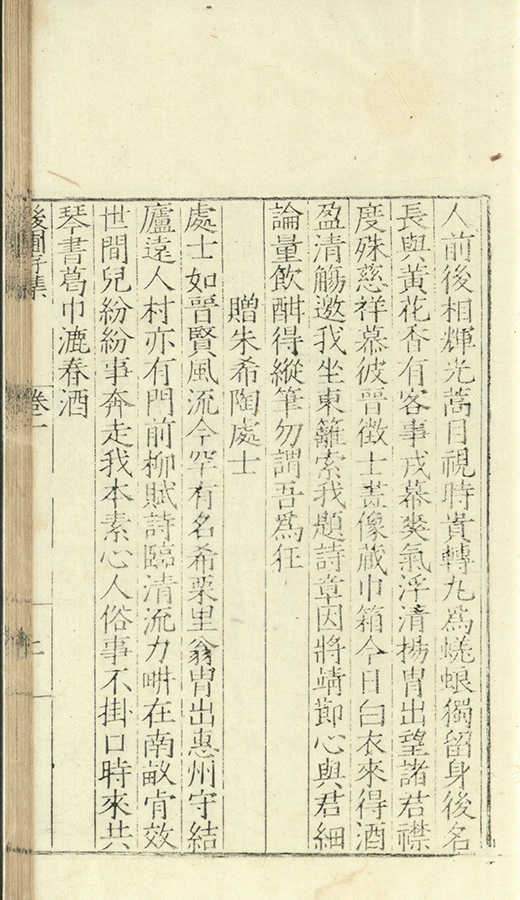 人前後相輝光蒿目視時貴轉丸為蜣蜋獨留身後名
長與黃花香有客事戎幕爽氣浮清揚胄出望諸君襟
度殊慈祥慕彼晉徵士畫像藏巾箱今日白衣來得酒
盈清觴邀我坐東籬索我題詩章因將靖節心與君細
論量飲酣得縱筆勿謂吾為狂
贈朱希陶處士
處士如晉賢風流今罕有名希栗里翁胄出惠州守結
廬遠人村亦有門前柳賦詩臨清流力畊在南畝肯效
世間兒紛紛事奔走我本素心人俗事不掛口時來共
琴書葛巾漉春酒
後圃 集 卷一